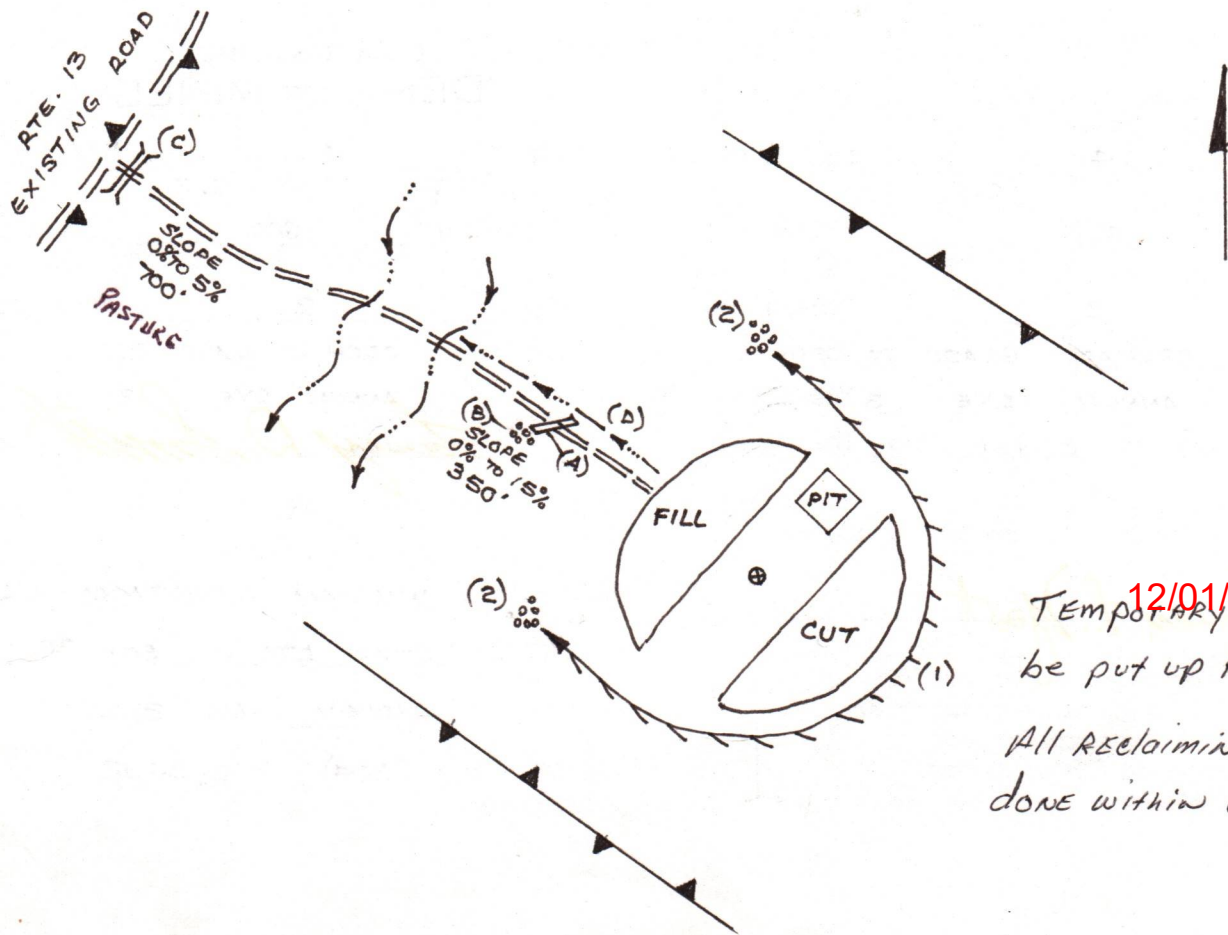 RTE. 13
EXISTING ROAD
(C)
SLOPE
0% TO 5%
700'
PASTURE
(2)
(B)
SLOPE
0% TO 15%
350'
(A)
(D)
FILL
PIT
CUT
(2)
(1)
12/01/
TEMPORARY
be put up
All REclaimin
dONE within